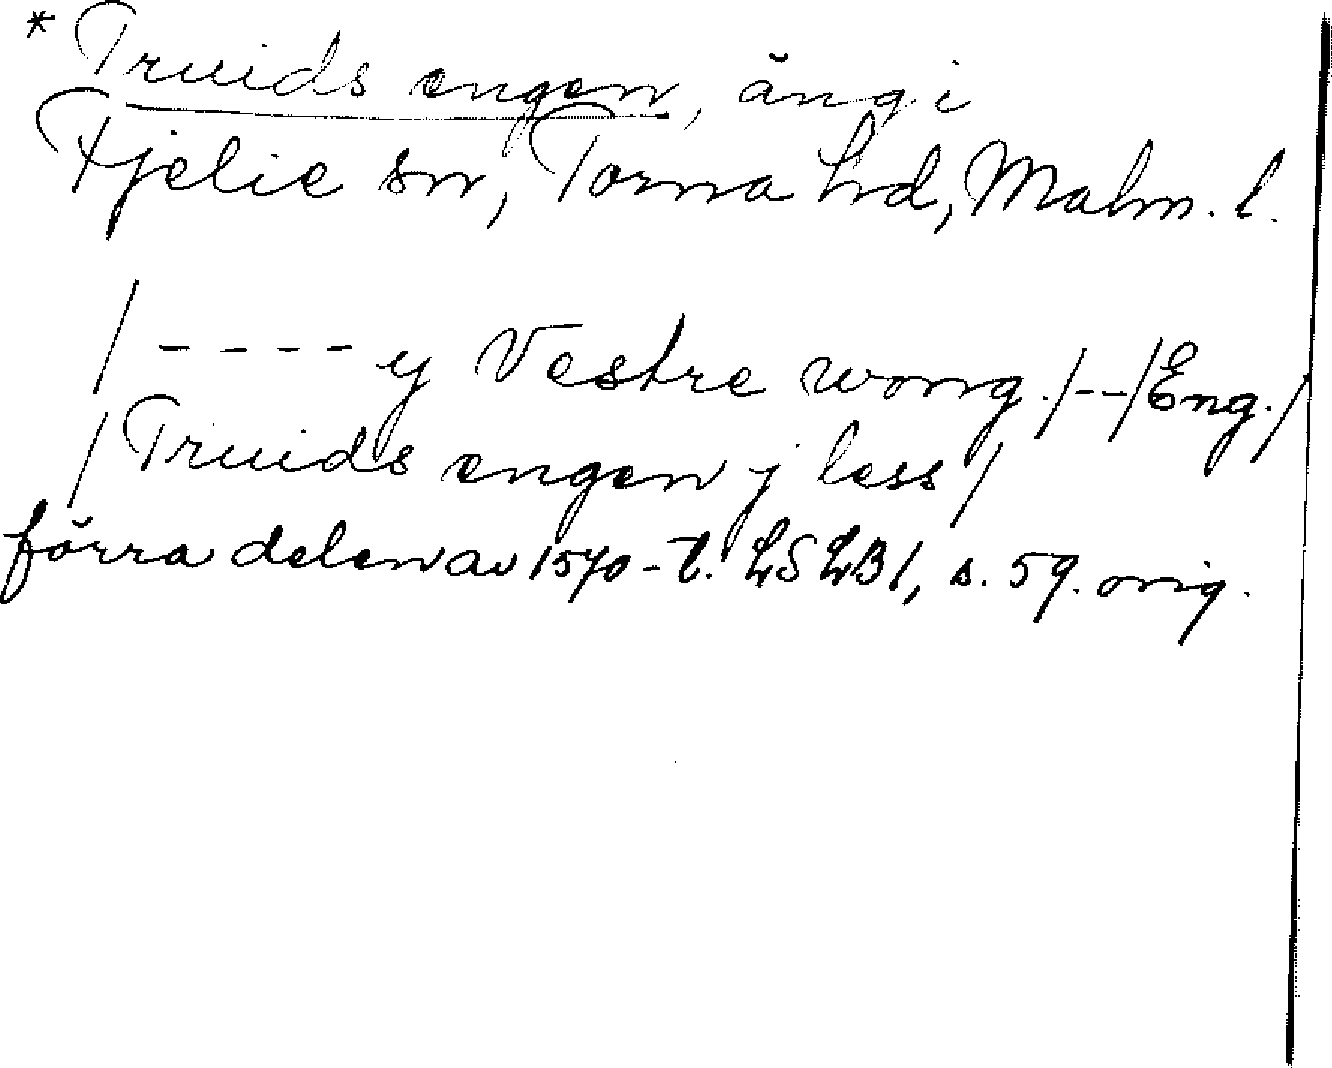 * Truids engen, äng i
Fjelie sn, Torna hd, Malm. l.
/ - - - - y Vestre wong. / - - / Eng. /
/ Truids engen j less /
förra delen av 1570-t. LSLB1, s. 59. orig.